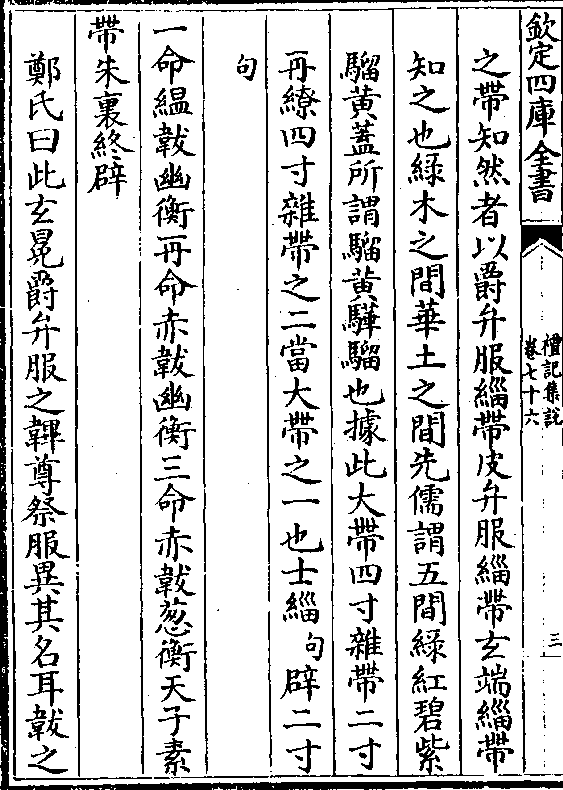 欽定四庫全書
禮記集說
卷七十六
三
之帶知然者以爵弁服緇帶皮弁服緇帶玄端緇帶
知之也綠木之間華土之間先儒謂五間綠紅碧紫
騮黃蓋所謂騮黃驊騮也據此大帶四寸雜帶二寸
再繚四寸雜帶之二當大帶之一也士緇句辟二寸
句
一命縕韍幽衡再命赤韍幽衡三命赤韍葱衡天子素
帶朱裏終辟
鄭氏曰此玄冕爵弁服之韠尊祭服異其名耳韍之